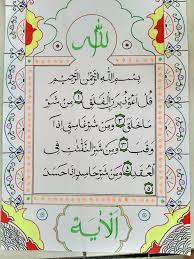 لله
بِسْمِ اللهِ الرَّحْمٰنِ الرَّحِيْمِ
قُلْ اَعُوْذُ بِرَبِّ الْفَلَقِ ۝١ مِنْ شَرِّ
مَا خَلَقَ ۝٢ وَمِنْ شَرِّ غَاسِقٍ اِذَا
وَقَبَ ۝٣ وَمِنْ شَرِّ النَّفّٰثٰتِ فِى
الْعُقَدِ ۝٤ وَمِنْ شَرِّ حَاسِدٍ اِذَا حَسَدَ
۝٥
الآية